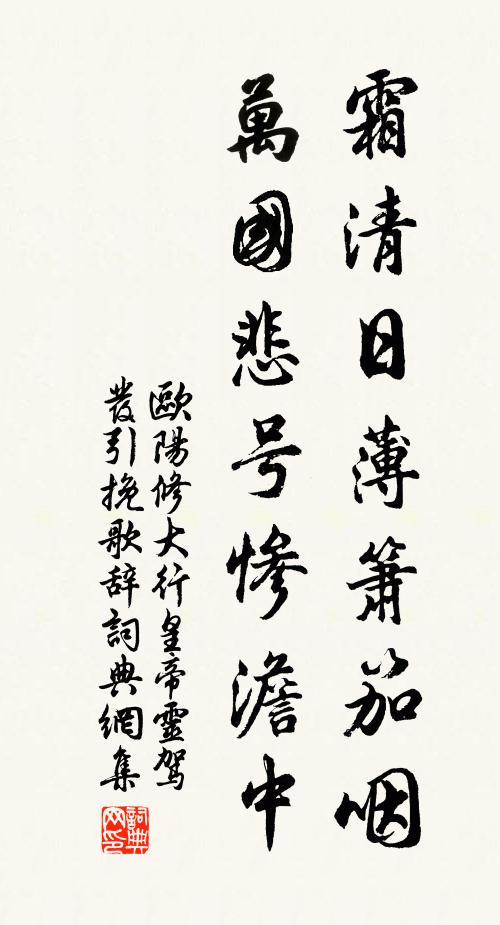 霜清日薄簫笳咽
萬國悲号慘澹中
歐陽修大行皇帝靈駕
發引挽歌辞詞典網集
詞典
网印